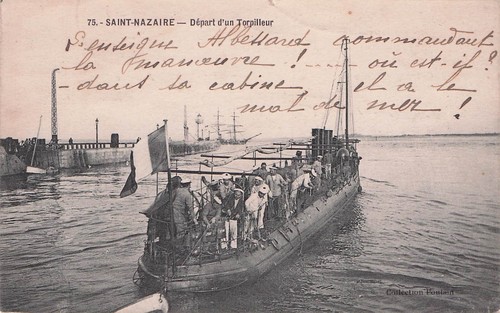 75. - SAINT-NAZAIRE — Départ d'un Torpilleur
L'enseigne Albessard commandant
la manœuvre ! ----- où est-il ?
- dans sa cabine, il a le
mal de mer !
Collection